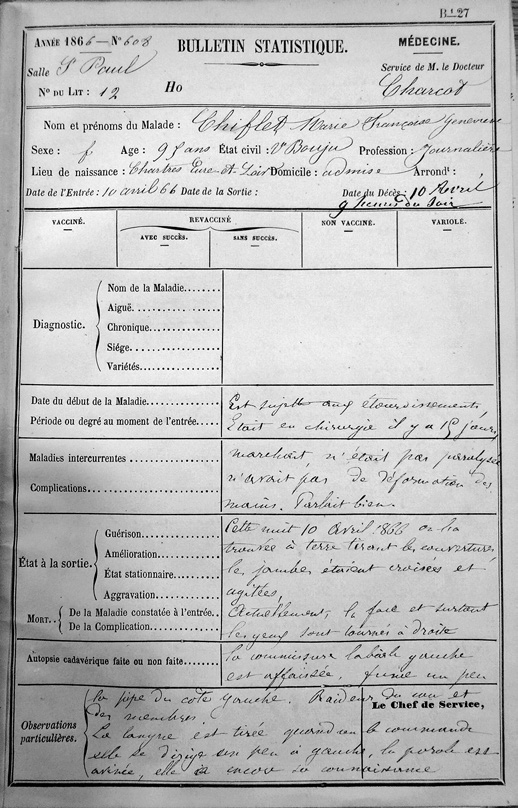 Bt 27
ANNÉE 1866 — N° 608
BULLETIN STATISTIQUE.
MÉDECINE.
Salle St Paul
Service de M. le Docteur
N° DU LIT : 12
Ho
Charcot
Nom et prénoms du Malade : Chiflet Marie Françoise Genevieve
Sexe : f Age : 9 ans État civil : Ve Profession : Journalière
Lieu de naissance : Chartres Eure et Loir Domicile : admise Arrondt :
Date de l'Entrée : 10 avril 66 Date de la Sortie : Date du Décès : 10 Avril
9 heures du Soir
VACCINÉ.
REVACCINÉ
AVEC SUCCÈS.
SANS SUCCÈS.
NON VACCINÉ.
VARIOLÉ.
Diagnostic.
Nom de la Maladie
Aiguë
Chronique
Siége
Variétés
Date du début de la Maladie
Est sujette aux étourdissements
Période ou degré au moment de l'entrée
Etait en chirurgie il y a 15 jours,
Maladies intercurrentes
marchait, n'était pas paralysée
n'avait pas de déformation des
Complications
mains. Parlait bien.
État à la sortie.
Guérison
Cette nuit 10 Avril 1866 on l'a
Amélioration
trouvée à terre tirant les couvertures,
État stationnaire
les jambes étaient croisées et
Aggravation
agitées,
MORT.
De la Maladie constatée à l'entrée
Actuellement, la face et surtout
De la Complication
les yeux sont tournés à droite
Autopsie cadavérique faite ou non faite
la commissure labiale gauche
est affaissée, fume un peu
Observations particulières.
la pipe du côté gauche. Raideur du cou et
des membres.
Le Chef de Service,
La langue est tirée quand on le commande
elle se dirige un peu à gauche, la parole est
avinée, elle a encore sa connaissance